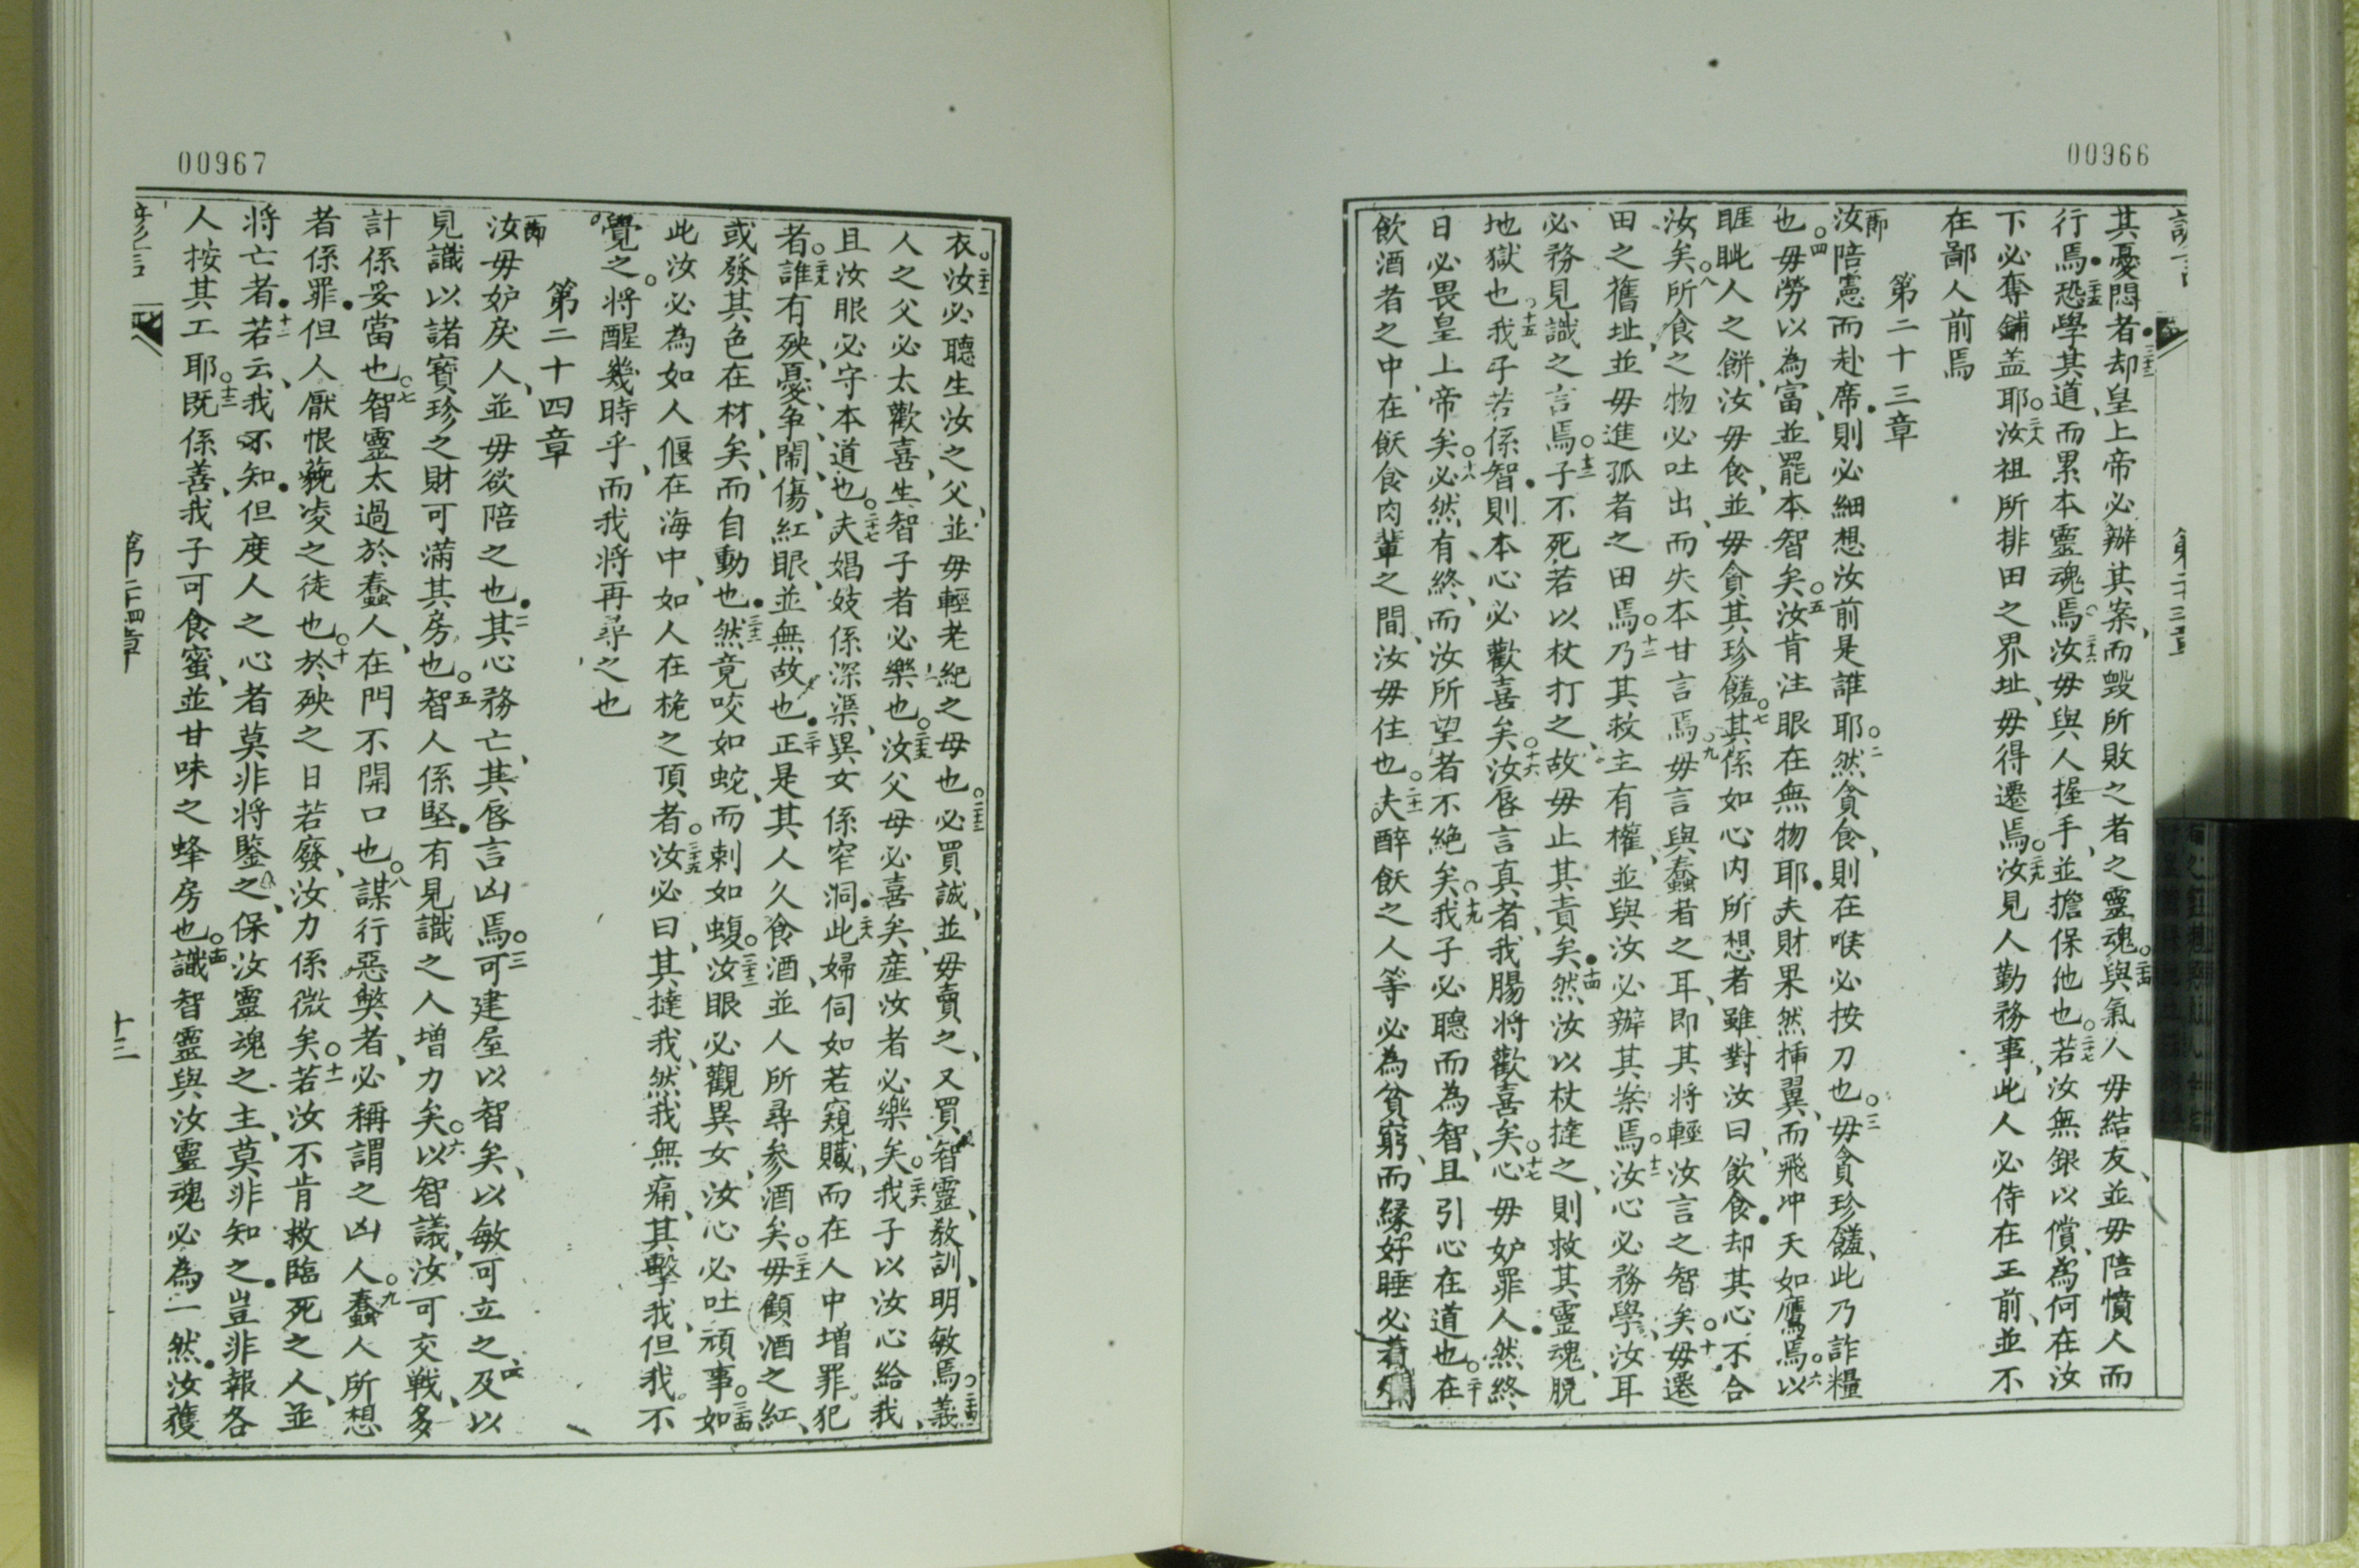 00966
其憂悶者却皇上帝必辦其案、而毀所敗之者之靈魂。與氣人毋結友、並毋陪憤人而
行焉恐學其道、而累本靈魂焉。汝毋與人握手、並擔保他也。若汝無銀以償、為何在汝
下必奪鋪盖耶。汝祖所排田之界址、毋得遷焉。汝見人勤務事、此人必侍在王前、並不
在鄙人前焉
第二十三章
一節汝陪憲而赴席、則必細想汝前是誰耶。二然貪食、則在喉必按刀也。三毋貪珍饈、此乃詐糧
也。四毋勞以為富、並罷本智矣。五汝肯注眼在無物耶、夫財果然揷翼、而飛冲天如鷹焉。六以
睚眦人之餅、汝毋食、並毋貪其珍饈。七其係如心内所想者、雖對汝曰、飲食、却其心不合
汝矣。八所食之物必吐出、而失本甘言焉。九毋言與蠢者之耳、即其將輕汝言之智矣。十毋遷
田之舊址、並毋進孤者之田焉。十一乃其救主有權、並與汝必辦其案焉。十二汝心必務學、汝耳
必務見識之言焉。十三子不死、若以杖打之、故毋止其責矣。十四然汝以杖撻之、則救其靈魂、脫
地獄也。十五我子若係智、則本心必歡喜矣。十六汝唇言真者、我腸將歡喜矣。十七心毋妒罪人、然終
日必畏皇上帝矣。十八必然有終、而汝所望者不絕矣。十九我子必聽而為智、且引心在道也。二十在
飲酒者之中、在飫食肉輩之間、汝毋住也。二十一夫醉飫之人等必為貧窮、而緣好睡必着
00967
衣。二十二汝必聽生汝之父、並毋輕老紀之母也。二十三必買誠、並毋賣之、又買智靈、教訓、明敏焉。二十四義
人之父必太歡喜、生智子者必樂也。二十五汝父母必喜矣、產汝者必樂矣。二十六我子以汝心給我、
且汝眼必守本道也。二十七夫娼妓係深渠、異女係窄洞。二十八此婦伺如若窺贓、而在人中增罪犯
者。二十九誰有殃、憂、争鬧、傷、紅眼、並無故也。三十正是其人久食酒、並人所尋參酒矣。三十一毋顧酒之紅、
或發其色在材矣、而自動也。三十二然竟咬如蛇、而刺如蝮。三十三汝眼必觀異女、汝心必吐頑事。三十四如
此汝必為如人偃在海中、如人在桅之頂者。三十五汝必曰、其撻我、然我無痛、其擊我、但我不
覺之。將醒幾時乎、而我將再尋之也
第二十四章
一節汝毋妒戾人、並毋欲陪之也。二其心務亡、其唇言凶焉。三可建屋以智矣、以敏可立之及以
見識以諸寶珍之財可滿其房也。五智人係堅、有見識之人增力矣。六以智議、汝可交戰、多
計係妥當也。七智靈太過於蠢人、在門不開口也。八謀行惡獘者、必稱謂之凶人。九蠢人所想
者係罪、但人厭恨藐凌之徒也。十於殃之日若廢、汝力係微矣。十一若汝不肯救臨死之人、並
將亡者、十二若云、我不知、但度人之心者莫非將鑒之、保汝靈魂之主、莫非知之、豈非報各
人按其工耶。十三既係善、我子可食蜜、並甘味之蜂房也。十四識智靈與汝靈魂必為一然、汝獲
第二十四章
十三